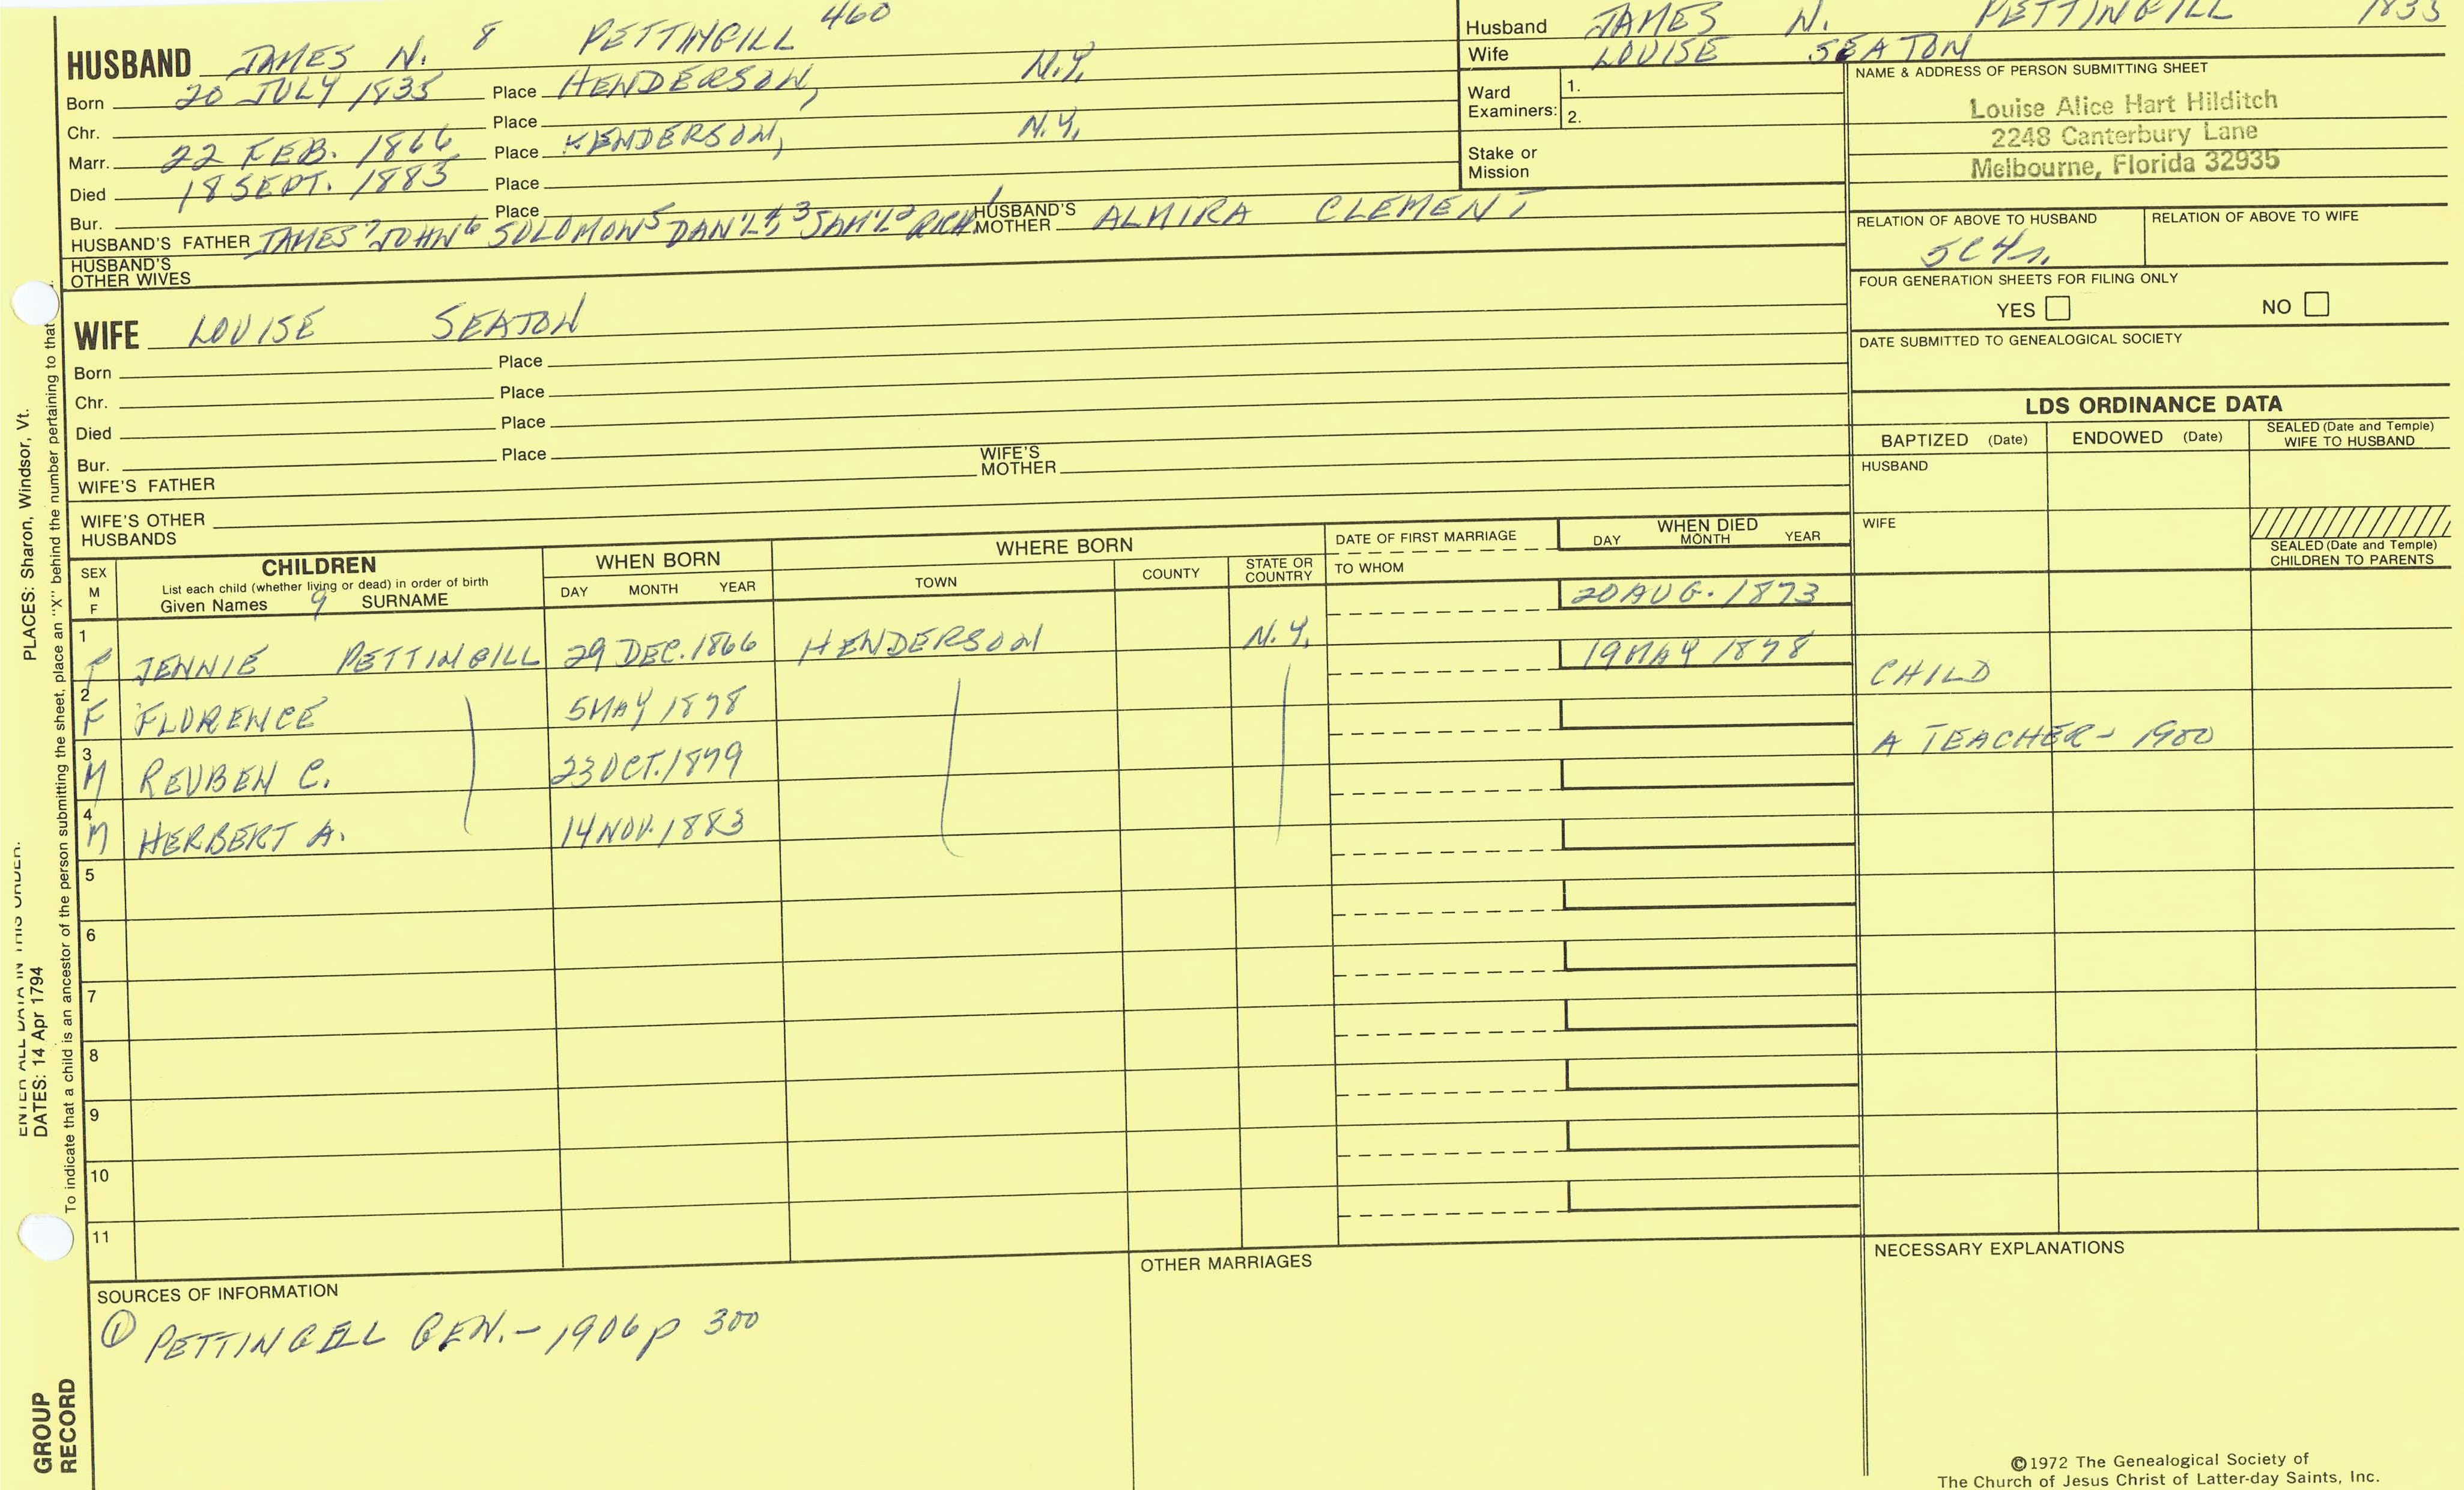 HUSBAND JAMES N. 8 PETTINGILL 460
Born 20 JULY 1835 Place HENDERSON, N.Y.
Chr. Place
Marr. 22 FEB. 1866 Place HENDERSON, N.Y.
Died 18 SEPT. 1883 Place
Bur. Place
HUSBAND'S FATHER JAMES 7 JOHN 6 SOLOMON 5 DAN'L 4, 3 SAM'L 2 RICH. 1 HUSBAND'S MOTHER ALMIRA CLEMENT
HUSBAND'S OTHER WIVES
Husband JAMES N. PETTINGILL 1835
Wife LOUISE SEATON
Ward Examiners: 1.
2.
Stake or Mission
NAME & ADDRESS OF PERSON SUBMITTING SHEET
Louise Alice Hart Hilditch
2248 Canterbury Lane
Melbourne, Florida 32935
RELATION OF ABOVE TO HUSBAND RELATION OF ABOVE TO WIFE
5C4r.
FOUR GENERATION SHEETS FOR FILING ONLY
YES NO
DATE SUBMITTED TO GENEALOGICAL SOCIETY
WIFE LOUISE SEATON
Born Place
Chr. Place
Died Place
Bur. Place
WIFE'S FATHER WIFE'S MOTHER
WIFE'S OTHER HUSBANDS
LDS ORDINANCE DATA
BAPTIZED (Date) ENDOWED (Date) SEALED (Date and Temple) WIFE TO HUSBAND
HUSBAND
WIFE
SEALED (Date and Temple) CHILDREN TO PARENTS
SEX M F CHILDREN WHEN BORN WHERE BORN DATE OF FIRST MARRIAGE WHEN DIED
List each child (whether living or dead) in order of birth
Given Names 9 SURNAME DAY MONTH YEAR TOWN COUNTY STATE OR COUNTRY TO WHOM DAY MONTH YEAR
1 F JENNIE PETTINGILL 29 DEC. 1866 HENDERSON N.Y. 20 AUG. 1873
2 F FLORENCE 5 MAY 1878 19 MAY 1878 CHILD
3 M REUBEN C. 23 OCT. 1879 A TEACHER - 1900
4 M HERBERT A. 14 NOV. 1883
5
6
7
8
9
10
11
SOURCES OF INFORMATION
① PETTINGELL GEN. - 1906 p 300
OTHER MARRIAGES
NECESSARY EXPLANATIONS
©1972 The Genealogical Society of
The Church of Jesus Christ of Latter-day Saints, Inc.
GROUP RECORD
ENTER ALL DATA IN THIS ORDER:
DATES: 14 Apr 1794 PLACES: Sharon, Windsor, Vt.
To indicate that a child is an ancestor of the person submitting the sheet, place an "X" behind the number pertaining to that